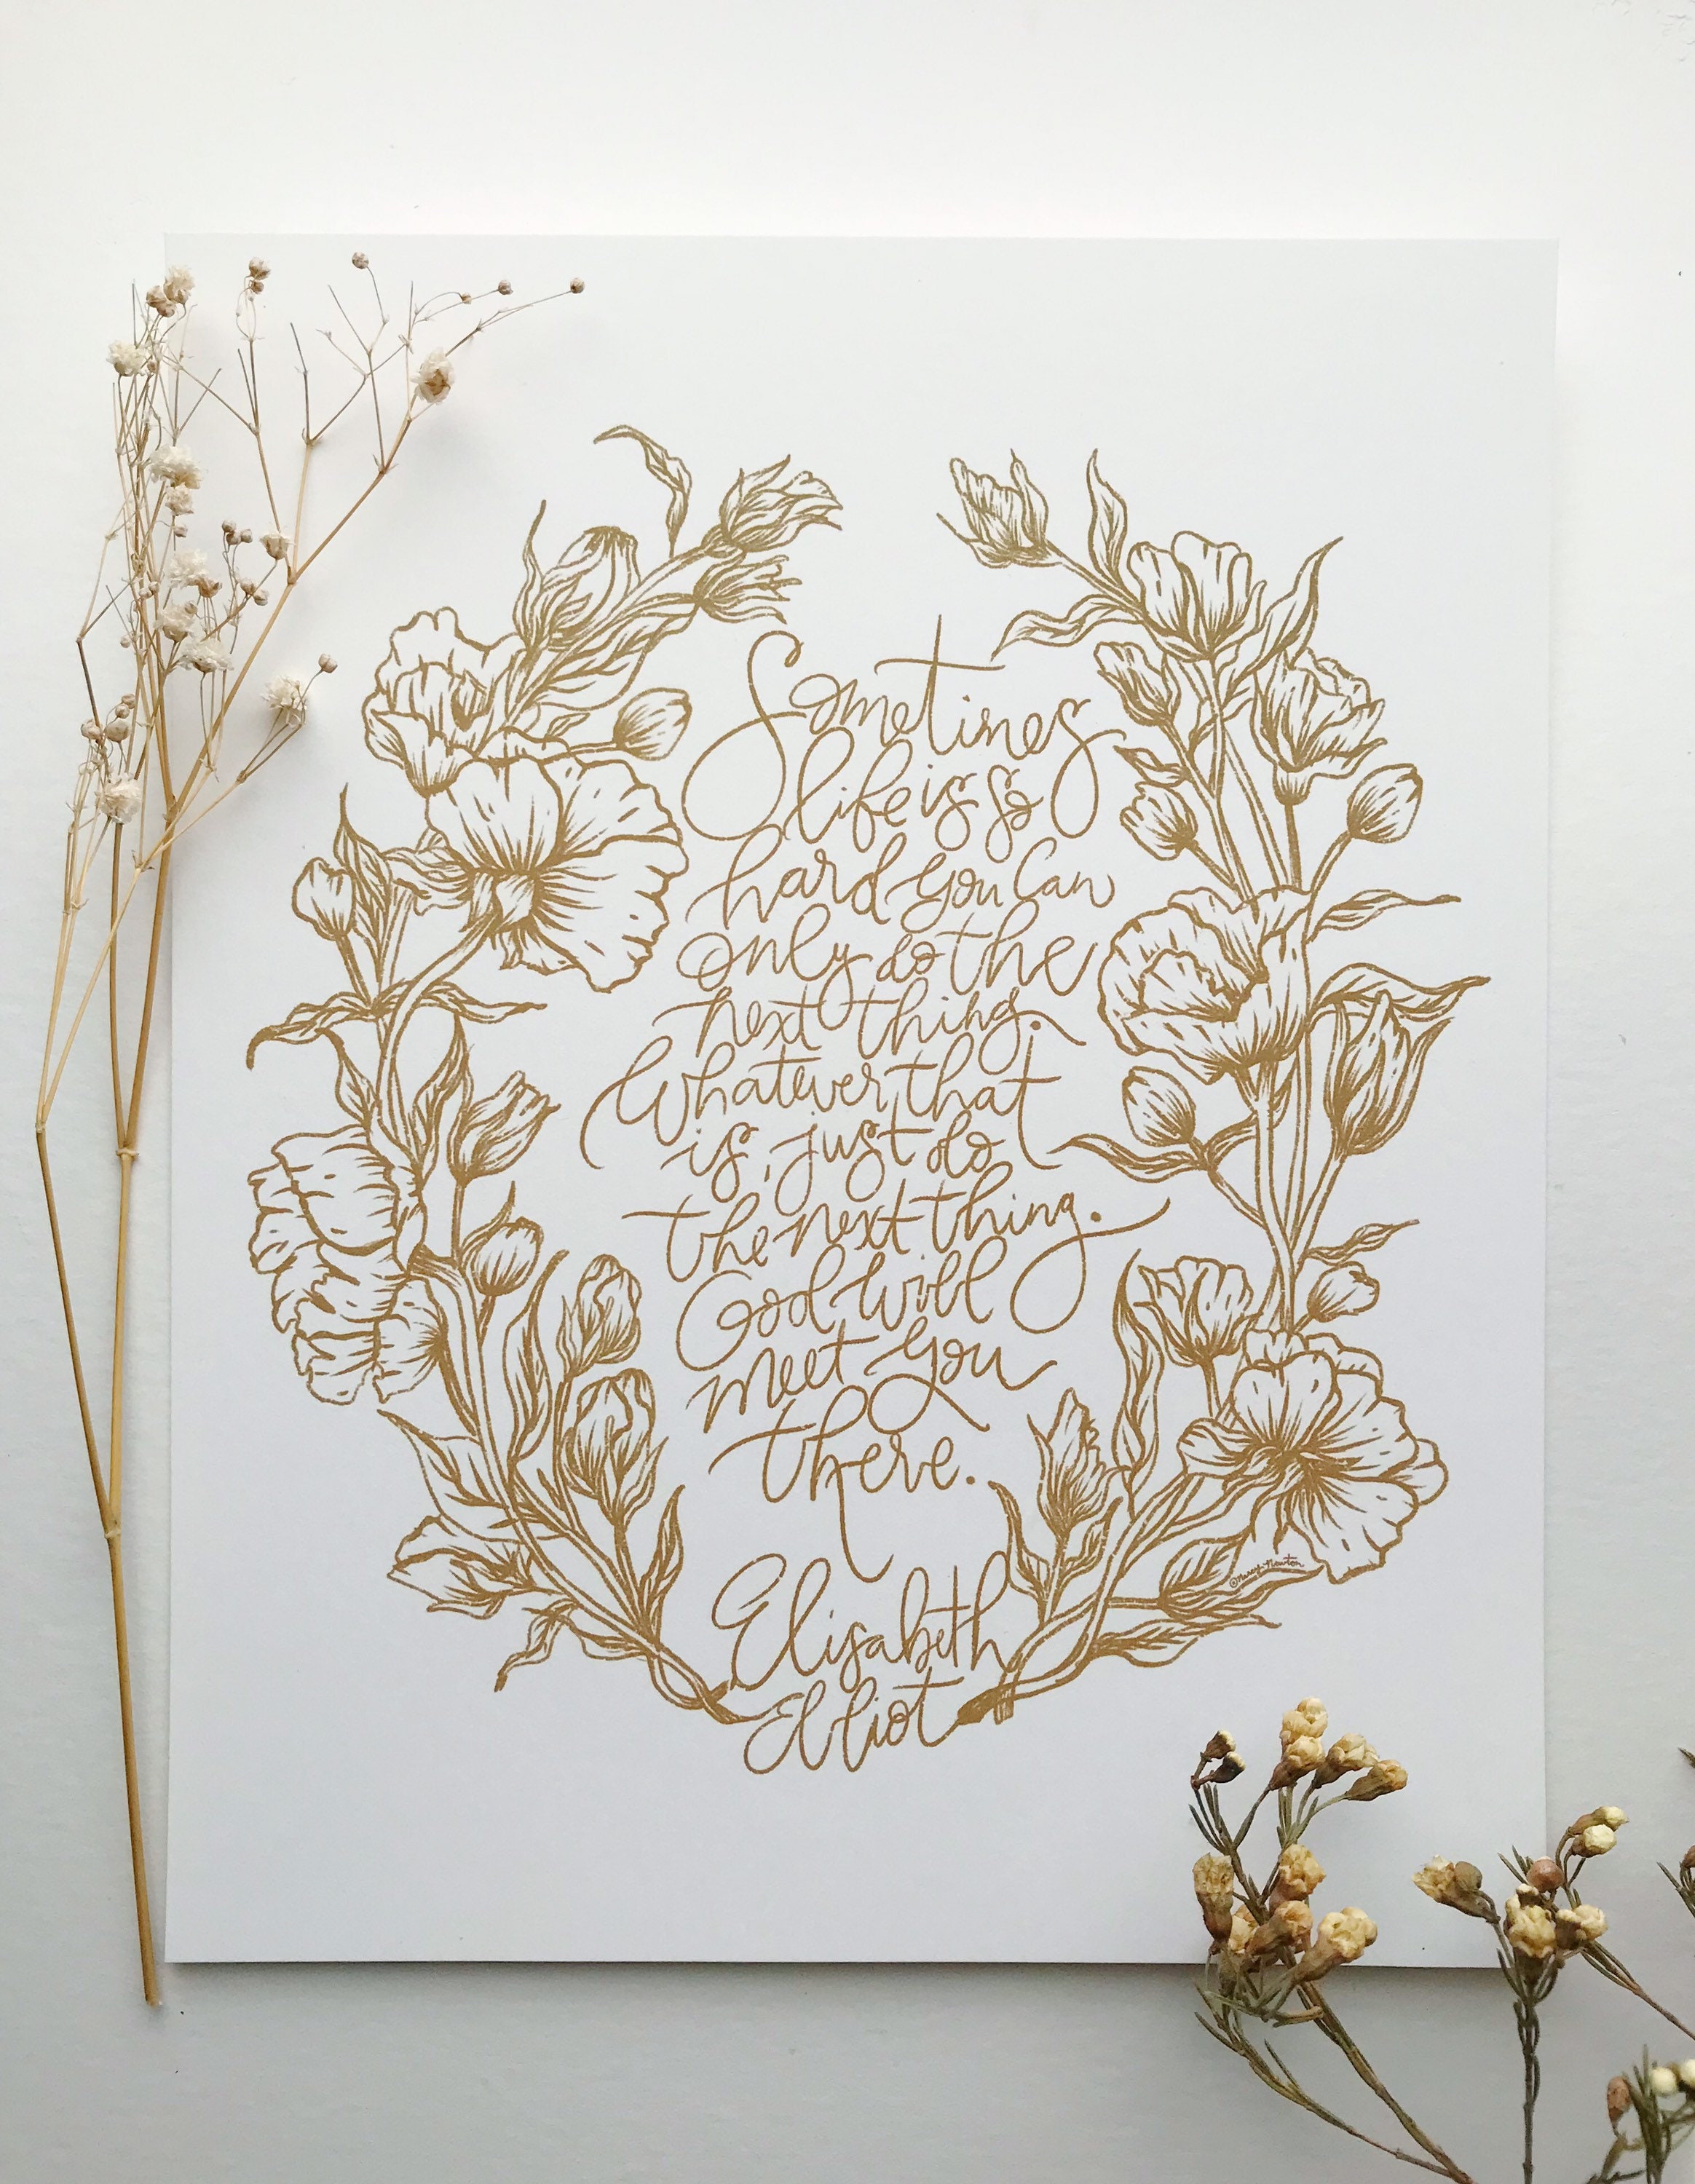 Sometimes
life is so
hard you can
only do the
next thing.
Whatever that
is, just do
the next thing.
God will
meet you
there.
Elisabeth
Elliot
©Marcy Newton